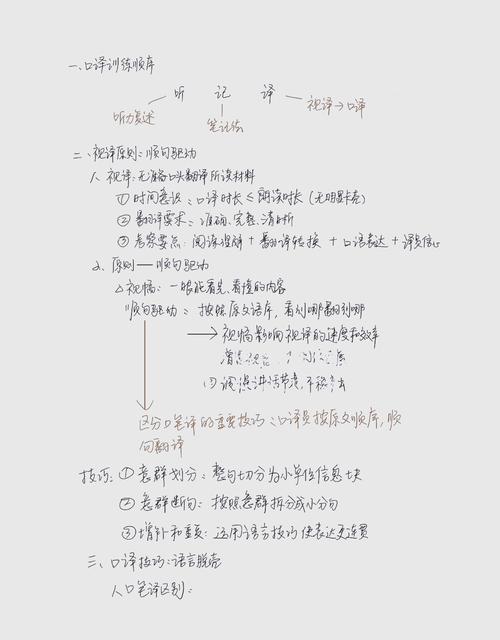 一、口译训练顺序
听 记 译
听力复述 笔记法 视译→口译
二、视译原则：顺句驱动
1、视译：无准备口头翻译所读材料
①时间意识：口译时长≤朗读时长（无明显卡壳）
②翻译要求：准确、完整、清晰
③考察要点：阅读理解+翻译转换+口语表达+译员信心
2、原则——顺句驱动
△视幅：一眼能看见、看懂的内容
顺句驱动：按照原文语序，看到哪翻到哪
→视幅影响视译的速度和效率
①调整讲话节奏，不
区分口笔译的重要技巧：口译员按原文顺序，顺
句翻译
技巧：①意群划分：整句切分为小单位信息块
②意群断句：按照意群拆分成小分句
③增补和重复：运用语言技巧使表达更连贯
三、口译技巧：语言脱壳
1、口笔译区别：